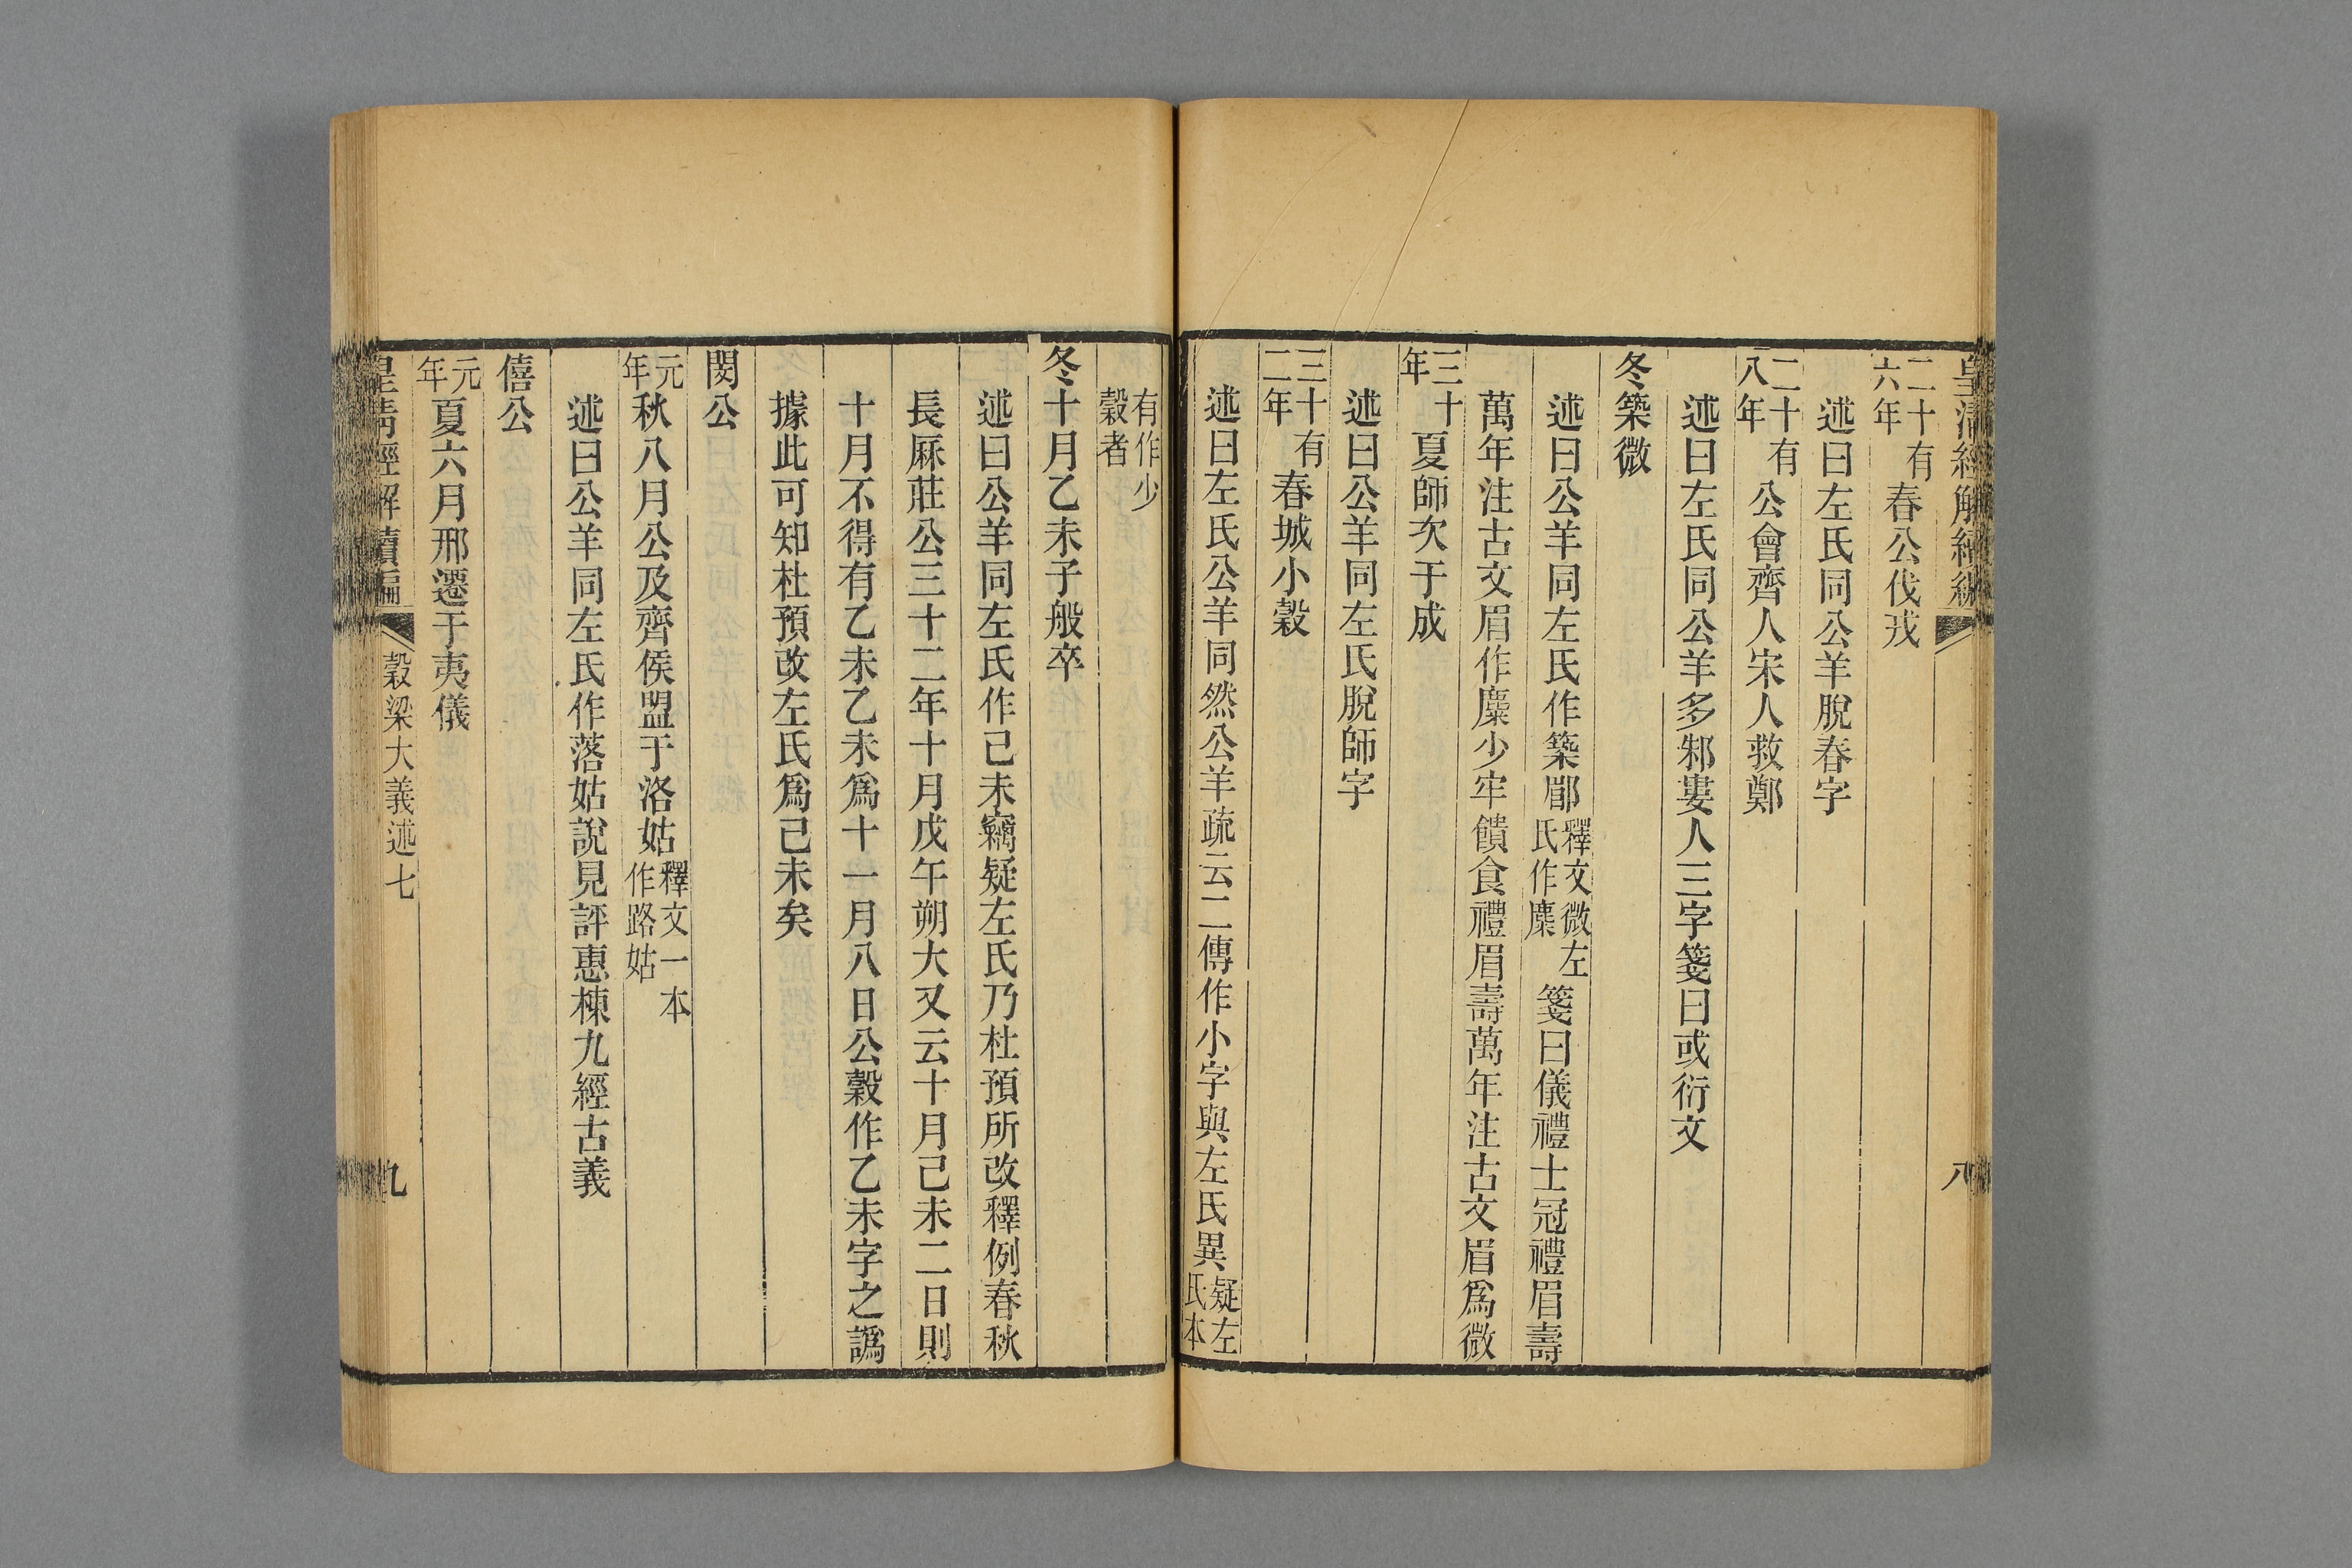 皇清經解續編
八
二十有六年春公伐戎
述曰左氏同公羊脫春字
二十有八年公會齊人宋人救鄭
述曰左氏同公羊多邾婁人三字箋曰或衍文
冬築微
述曰公羊同左氏作築郿釋文微左氏作麋箋曰儀禮士冠禮眉壽
萬年注古文眉作麋少牢饋食禮眉壽萬年注古文眉爲微
三十年夏師次于成
述曰公羊同左氏脫師字
三十有二年春城小穀
述曰左氏公羊同然公羊疏云二傳作小字與左氏異疑左氏本
有作少穀者
冬十月乙未子般卒
述曰公羊同左氏作己未竊疑左氏乃杜預所改釋例春秋
長厤莊公三十二年十月戊午朔大又云十月己未二日則
十月不得有乙未乙未爲十一月八日公穀作乙未字之譌
據此可知杜預改左氏爲己未矣
閔公
元年秋八月公及齊侯盟于洛姑釋文一本作路姑
述曰公羊同左氏作落姑說見評惠棟九經古義
僖公
元年夏六月邢遷于夷儀
皇清經解續編
穀梁大義述七
九